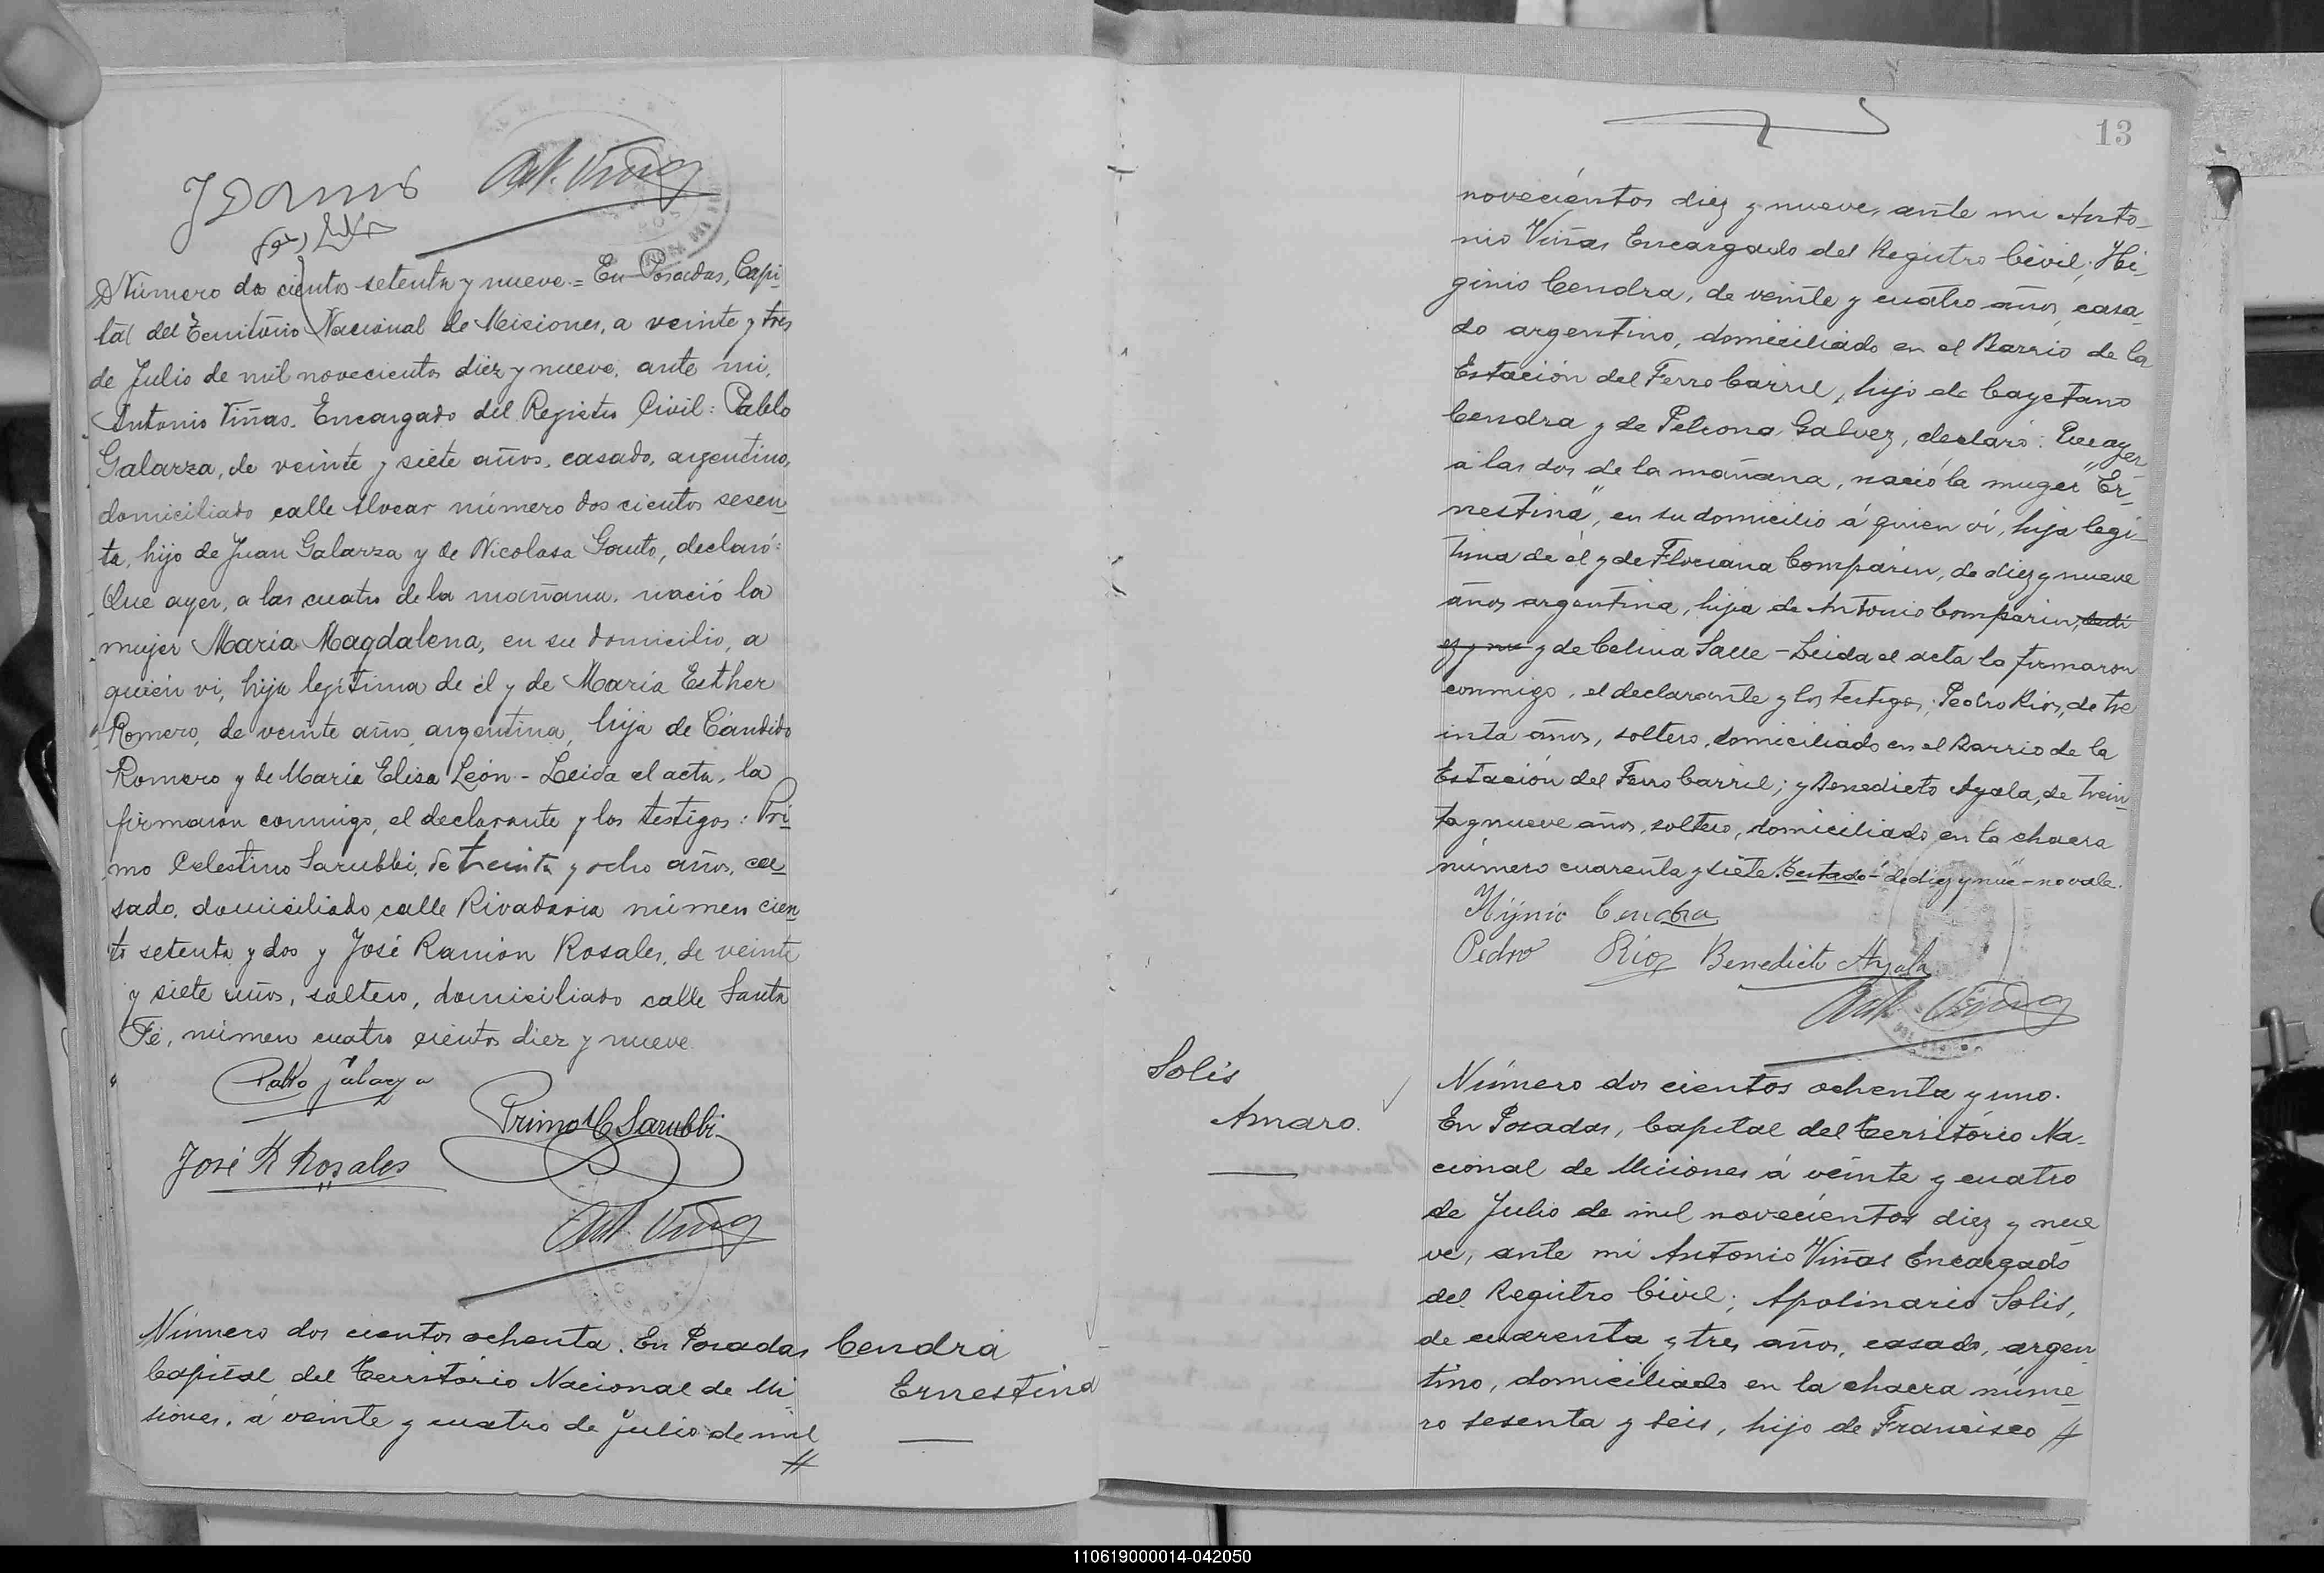 Ant. Viñas
Número dos cientos setenta y nueve = En Posadas, Capi-
tal del Territorio Nacional de Misiones, a veinte y tres
de Julio de mil novecientos diez y nueve, ante mi,
Antonio Viñas, Encargado del Registro Civil: Pablo
Galarza, de veinte y siete años, casado, argentino,
domiciliado calle Alvear número dos cientos sesen-
ta, hijo de Juan Galarza y de Nicolasa Gauto, declaró:
Que ayer, a las cuatro de la mañana, nació la
mujer María Magdalena, en su domicilio, a
quién vi, hija legítima de él y de María Esther
Romero, de veinte años, argentina, hija de Cándido
Romero y de María Elisa León - Leida el acta, la
firmaron conmigo, el declarante y los testigos: Pri-
mo Celestino Sarubbi, de treinta y ocho años, ca-
sado, domiciliado calle Rivadavia número cien
to setenta y dos y José Ramón Rosales, de veinte
y siete años, soltero, domiciliado calle Santa
Fé, número cuatro cientos diez y nueve.
Pablo Galarza
Primo C Sarubbi
José R Rosales
Ant. Viñas
Número dos cientos ochenta. En Posadas
Capital del Territorio Nacional de Mi-
siones, á veinte y cuatro de Julio de mil
//
Cendra
Ernestina
13
novecientos diez y nueve, ante mi Anto-
nio Viñas Encargado del Registro Civil; Hi-
ginio Cendra, de veinte y cuatro años, casa-
do argentino, domiciliado en el Barrio de la
Estación del Ferro Carril, hijo de Cayetano
Cendra y de Petrona Galvez, declaró: Que ayer
a las dos de la mañana, nació la muger "Er-
nestina", en su domicilio á quien ví, hija legi-
tima de él y de Floriana Comparin, de diez y nueve
años argentina, hija de Antonio Comparin, de di
ez y nue y de Celina Salle - Leida el acta la firmaron
conmigo, el declarante y los testigos; Pedro Rios, de tre
inta años, soltero, domiciliado en el Barrio de la
Estación del Ferro Carril; y Benedicto Ayala, de trein-
ta y nueve años, soltero, domiciliado en la chacra
número cuarenta y siete. Testado - "de diez y nue" - no vale.
Higinio Cendra
Pedro Rios Benedicto Ayala
Ant. Viñas
Solis
Amaro.
Número dos cientos ochenta y uno.
En Posadas, Capital del Territorio Na-
cional de Misiones á veinte y cuatro
de Julio de mil novecientos diez y nue
ve, ante mi Antonio Viñas Encargado
del Registro Civil; Apolinario Solis,
de cuarenta y tres años, casado, argen
tino, domiciliado en la chacra núme-
ro sesenta y seis, hijo de Francisco //
110619000014-042050